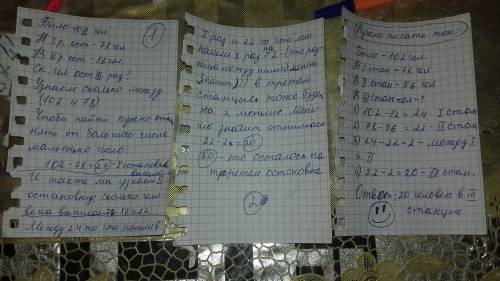 Было-102 чел.
В I р. ост - 78 чел
В II р. ост - 56 чел
Ск. чел ост III раз?
Узнаем сколько между
(102 и 78)
Чтоб найти нужно отн
нять от большого числа
маленькое число:
102-78=24-I остановке
вышло
И так же мы узнаем II
остановку сколько чел
века вышло 78-56=22
Между 24 то что нашли в
1
I раз и 22 то что мы
нашли II раз на 2 - (это раз
ница между ними) мень
значит)) в третей
станцыи тоже будет
на 2 меньше. Мень
ше значит отнимаем
22-2=20
20 - это осталось на
третей остановке
2
Нужно писать это!
Было - 102 чел.
В I стан - 78 чел
В II стан - 56 чел
В III стан - ?
1) 102-78=24-I стан
2) 78-56=22-II стан
3) 24-22=2-между I
и II
4) 22-2=20-III стан.
Ответ: 20 человек в III
станцые